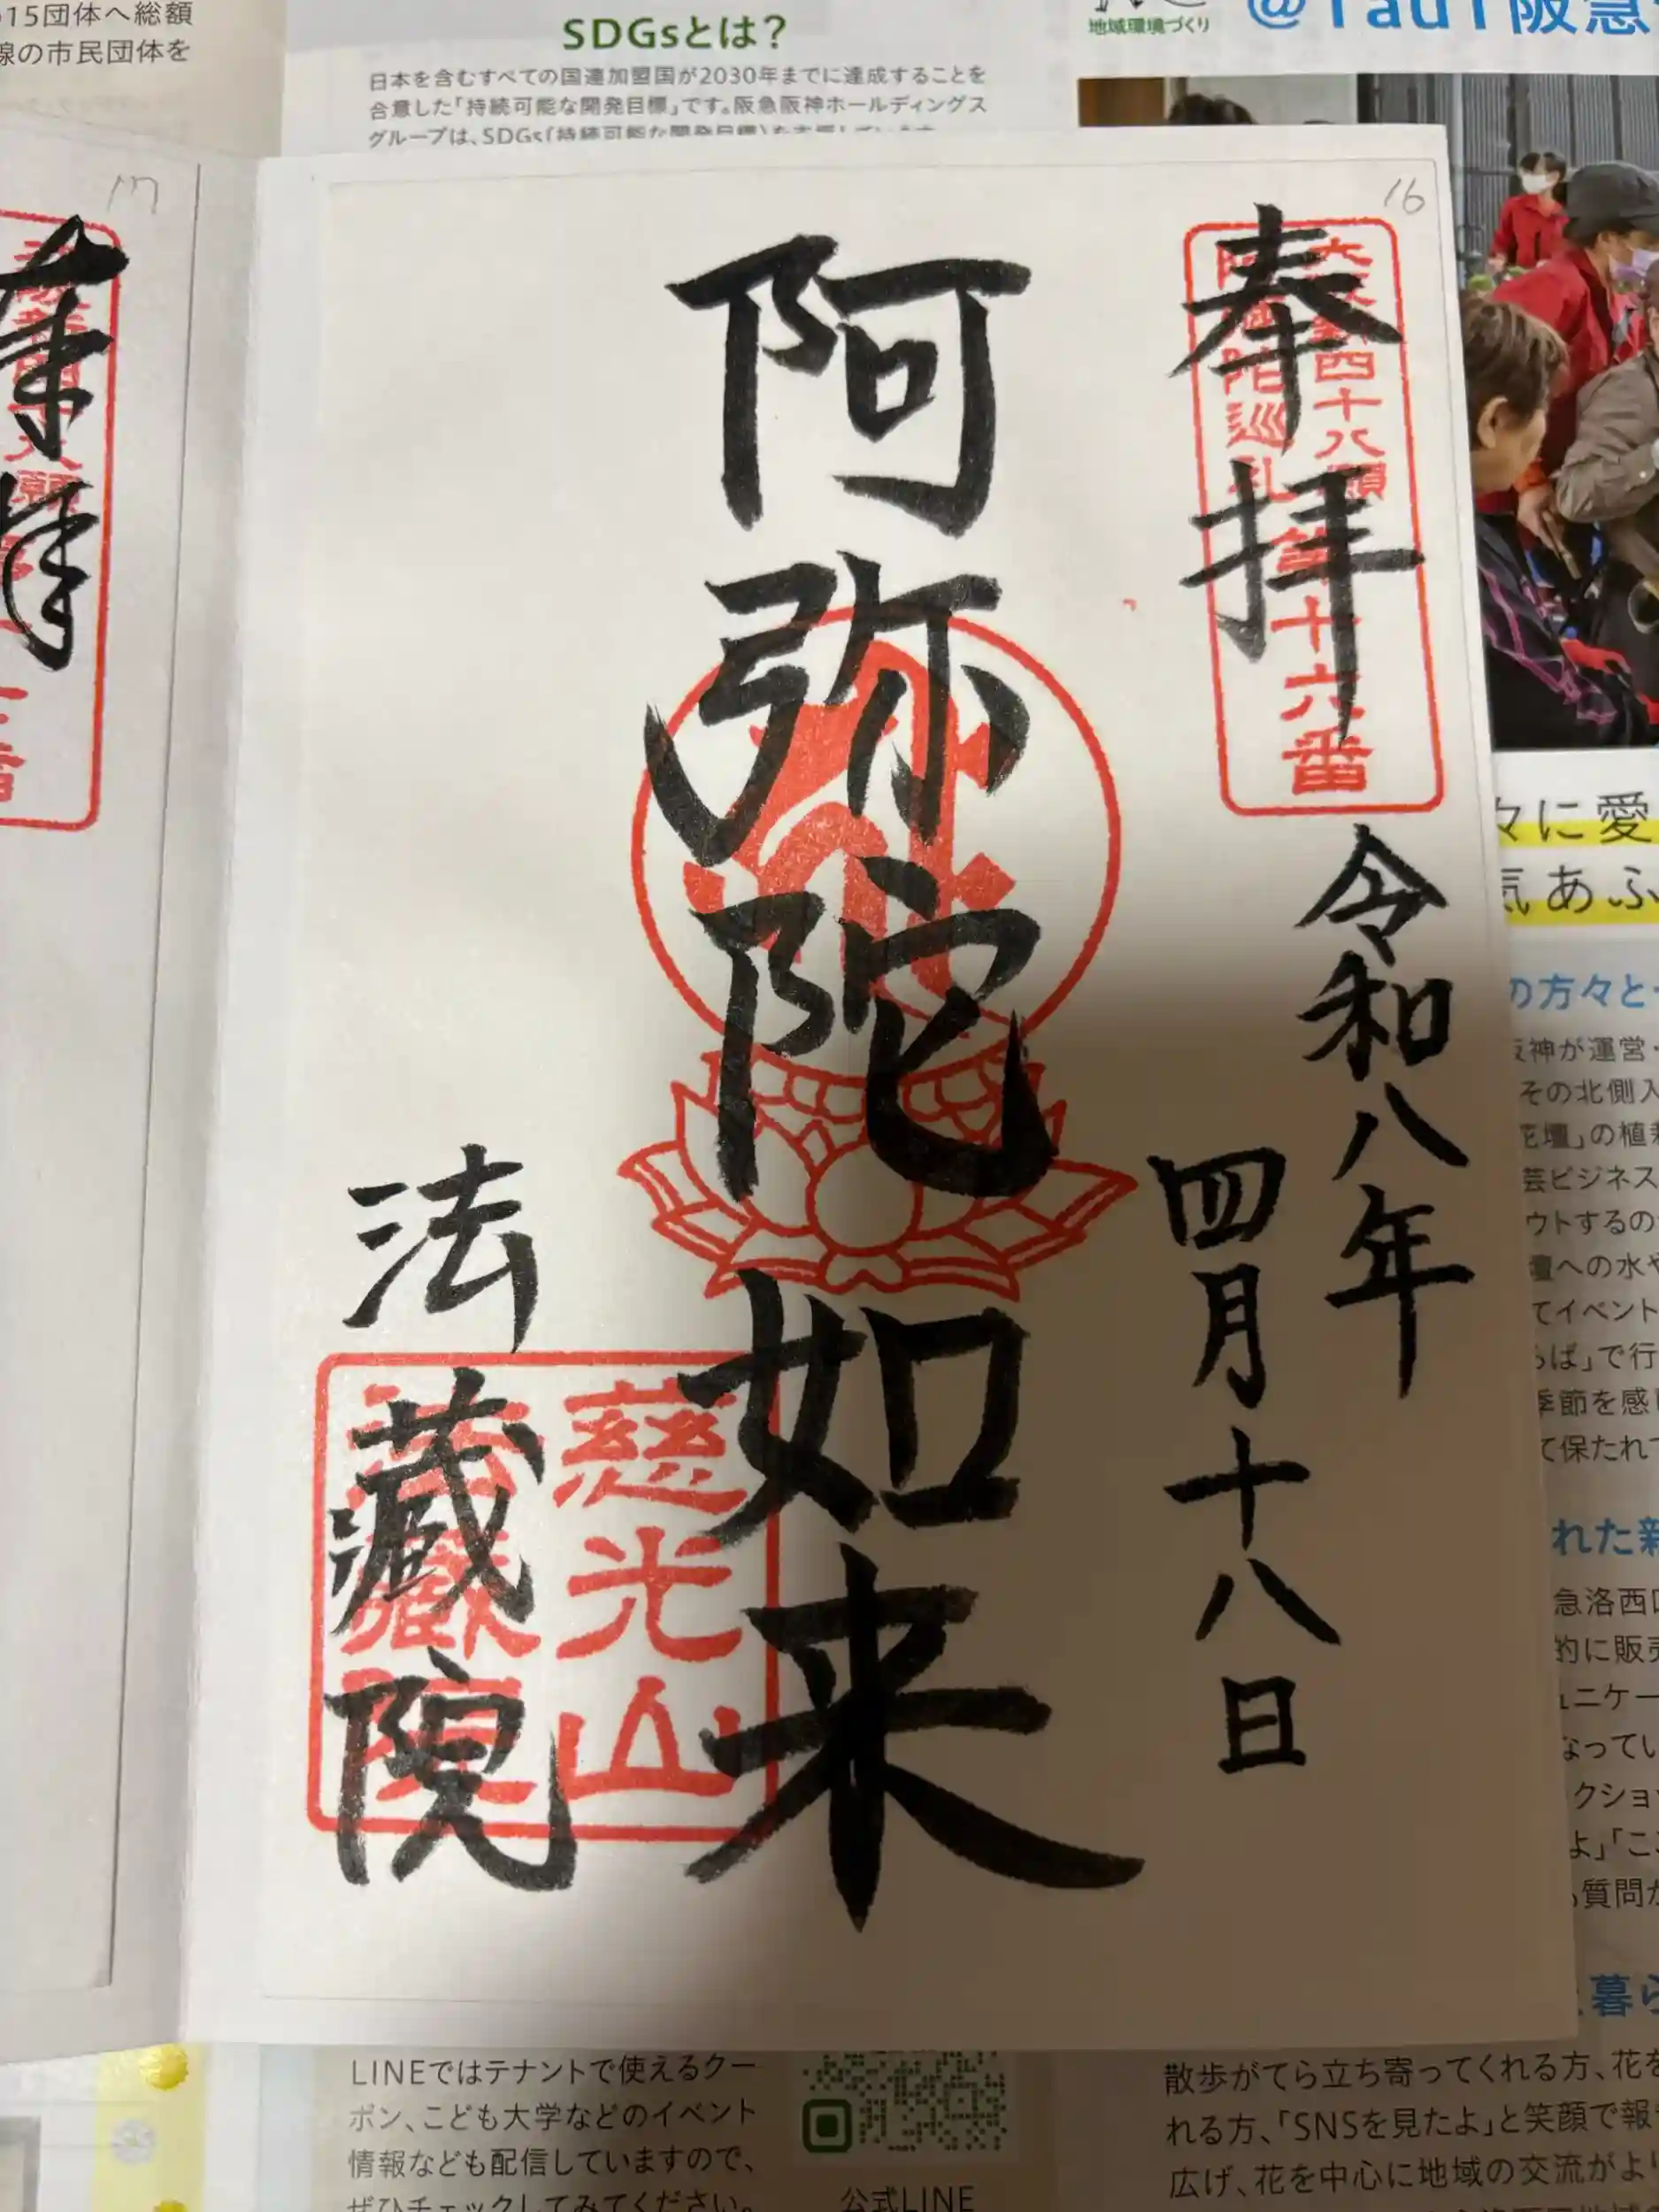 15団体へ総額
線の市民団体を
SDGsとは?
日本を含むすべての国連加盟国が2030年までに達成することを
合意した「持続可能な開発目標」です。阪急阪神ホールディングス
グループは、SDGs(持続可能な開発目標)を
地域環境づくり
17
16
奉拝
大阪新四十八願
阿弥陀巡礼
第十六番
令和八年
四月十八日
阿弥陀如来
法蔵院
慈光山
法蔵院
々に愛
気あふ
の方々と
阪神が運営・
その北側入
花壇」の植栽
芸ビジネス
ウトするの
壇への水や
てイベント
らば」で行
季節を感
て保たれて
れた新
急洛西口
的に販売
ュニケー
なってい
クション
よ」「こ
質問が
暮ら
LINEではテナントで使えるクー
ポン、こども大学などのイベント
情報なども配信していますので、
ぜひチェックしてみてください。
公式LINE
散歩がてら立ち寄ってくれる方、花を
れる方、「SNSを見たよ」と笑顔で報
広げ、花を中心に地域の交流がより